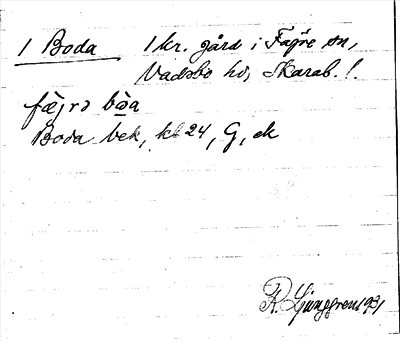 1 Boda 1 kr. gård i Fägre sn,
Vadsbo hd, Skarab. l.
fæ̀jrə bòa
Boda bek, kbl 24, G, ek
R. Ljunggren 1931